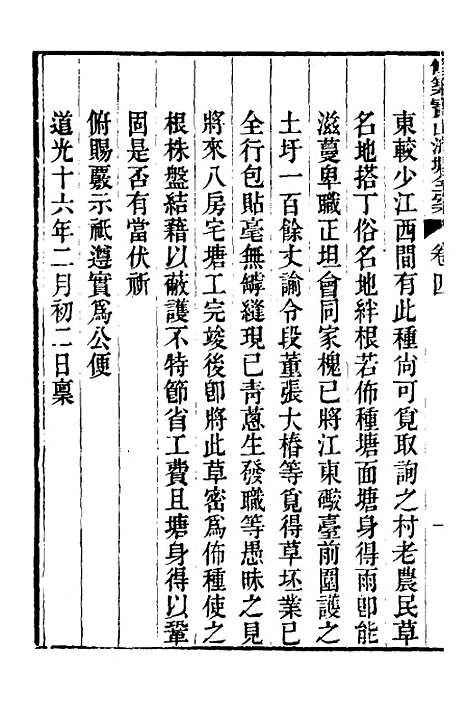 修築寶山海塘全案 卷四
東較少江西間有此種尙可覓取詢之村老農民草
名地搭丁俗名地絆根若佈種塘面塘身得雨卽能
滋蔓卑職正坦會同家槐已將江東礅臺前圍護之
土圩一百餘丈諭令段董張大椿等覓得草坯業已
全行包貼毫無罅縫現已靑蔥生發職等愚昧之見
將來八房宅塘工完竣後卽將此草密爲佈種使之
根株盤結藉以蔽護不特節省工費且塘身得以鞏
固是否有當伏祈
俯賜覈示祗遵實爲公便
道光十六年二月初二日稟